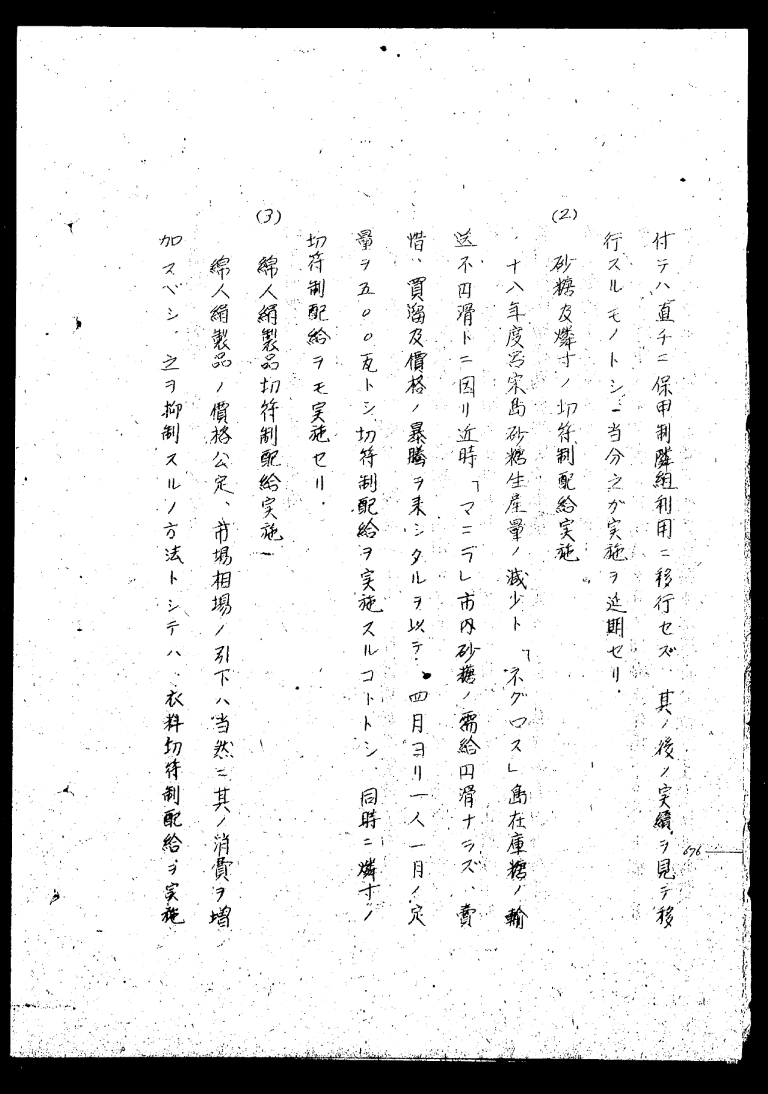 付テハ直チニ保甲制隣組利用ニ移行セズ 其ノ後ノ実績ヲ見テ移
行スルモノトシ 当分之ガ実施ヲ延期セリ.
(2) 砂糖及燐寸ノ切符制配給実施
十八年度呂宋島砂糖生産量ノ減少ト「ネグロス」島在庫糖ノ輸
送不円滑トニ因リ近時「マニラ」市内砂糖ノ需給円滑ナラズ、賣
惜、買溜及價格ノ暴騰ヲ来シタルヲ以テ、四月ヨリ一人一月ノ定
量ヲ五〇〇瓦トシ切符制配給ヲ実施スルコトトシ 同時ニ燐寸ノ
切符制配給ヲモ実施セリ.
(3) 綿人絹製品切符制配給実施
綿人絹製品ノ價格公定、市場相場ノ引下ハ当然ニ其ノ消費ヲ増
加スベシ、之ヲ抑制スルノ方法トシテハ、衣料切符制配給ヲ実施
676